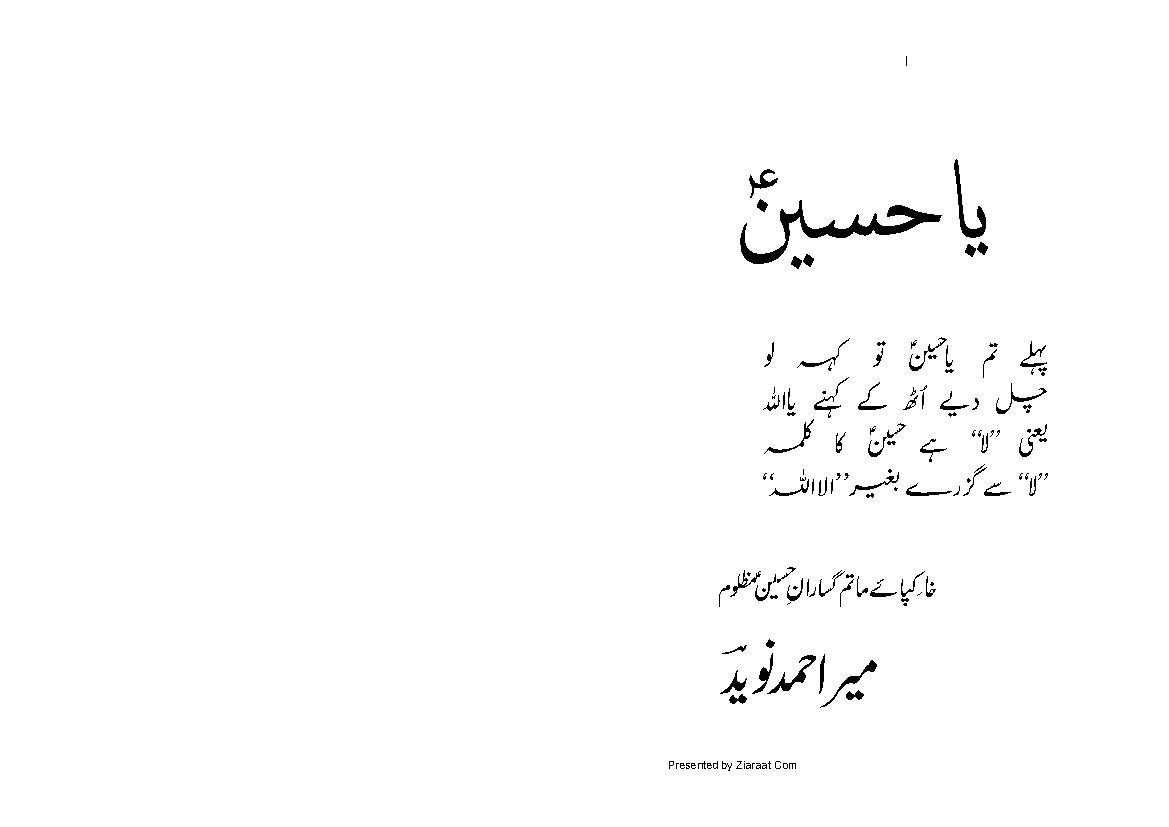 ا
یا حسینؑ
پہلے تم یاحسینؑ تو کہہ لو
چل دیے اُٹھ کے کہنے یااللہ
یعنی ”لا“ ہے حسینؑ کا کلمہ
”لا“ سے گزرے بغیر ”الا اللہ“
خارِ کپائے ماتم گسارانِ حسینؑ مظلوم
میر احمد نویدؔ
Presented by Ziaraat Com